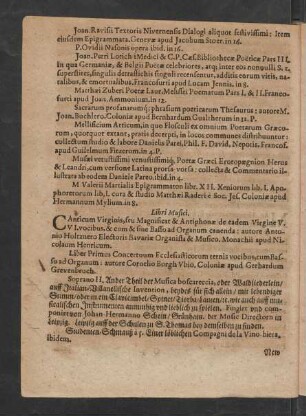 Joan. Ravisii Textoris Nivernensis Dialogi aliquot festivissimi: Item
eiusdem Epigrammata. Genevæ apud Jacobum Stoer. in 16.
P. Ovidii Nasonis opera ibid. in 16.
Joan. Petri Lotichii Medici & C. P. Cæs. Bibliothecæ Poëticæ Pars III.
In qua Germaniæ, & Belgii Poëtæ celebriores, atq; inter eos nonnulli
superstites, singulis distrastichis singuli recensentur, additis eorum vitis, nata-
libus, & emortualibus. Francofurti apud Lucam Jennis. in 8.
Matthæi Zuberi Poëtæ Laur. Melissei Poëmatum Pars I. & II. Franco-
furti apud Joan. Ammonium. in 12.
Sacrarum profanarumq; phrasium poëticarum Thesaurus: autore M.
Joan. Buchlero. Coloniæ apud Bernhardum Gualtherum in 12. P.
Mellificium Atticum, in quo Flosculi ex omnium Poëtarum Græco-
rum, quorquot extant, pratis decerpti, in locos communes distribuuntur:
collectum studio & labore Danielis Parei, Phil. F. David, Neporis. Francof.
apud Guilelmum Fitzerum. in 4. P.
Musæi vetustissimi venustissimiq; Poëtæ Græci, Erotopægnion Herus
& Leandri, cum versione Latina prioris versa: collecta & Commentario il-
lustrata ab eodem Daniele Pareo. ibid. in 4.
M. Valerii Martialis Epigrammaton libr. XII. Xeniorum lib. I. Apo-
phoretorum lib. I. cura & studio Matthæi Raderi è Soc. Jes. Coloniæ apud
Hermannum Mylium in 8.
Libri Musici.
CAnticum Virginis, seu Magnificat & Antiphonæ de eadem Virgine V.
V. I. vocibus, & cum & sine Basso ad Organum canenda: autore Antonio
Holtznero Electoris Bavariæ Organista & Musico. Monachii apud Ni-
colaum Henricum.
Liber Primus Concertuum Ecclesiasticorum ternis vocibus, cum Bas-
so ad Organum: autore Cornelio Borgh Vbio, Coloniæ apud Gerhardum
Grevenbruch.
Soprano II. Ander Theil der Musica boscareccia, oder Waldliederlein
auff Italian-Villanellische Invention, beydes für sich allein, mit lebendiger
Stimm, oder in ein Clavicimbel, Spinet Tiorba Lauten, ꝛc. wie auch auff musi-
calischen Instrumenten anmütig und lieblich zu spielen. Fingirt und com-
ponirt von Johan-Hermanno Schein, Grünhain. der Music Directorn in
Leipzig. Leipzig auff der Schulen zu S. Thomas bey demselben zu finden.
Studenten Schmauß à 5. Einer löblichen Compagni de la Vino-biera,
ibidem.
New